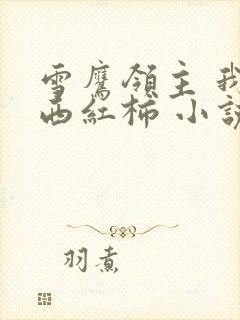 雪鷹領主 我
西紅柿 小說
羽煮